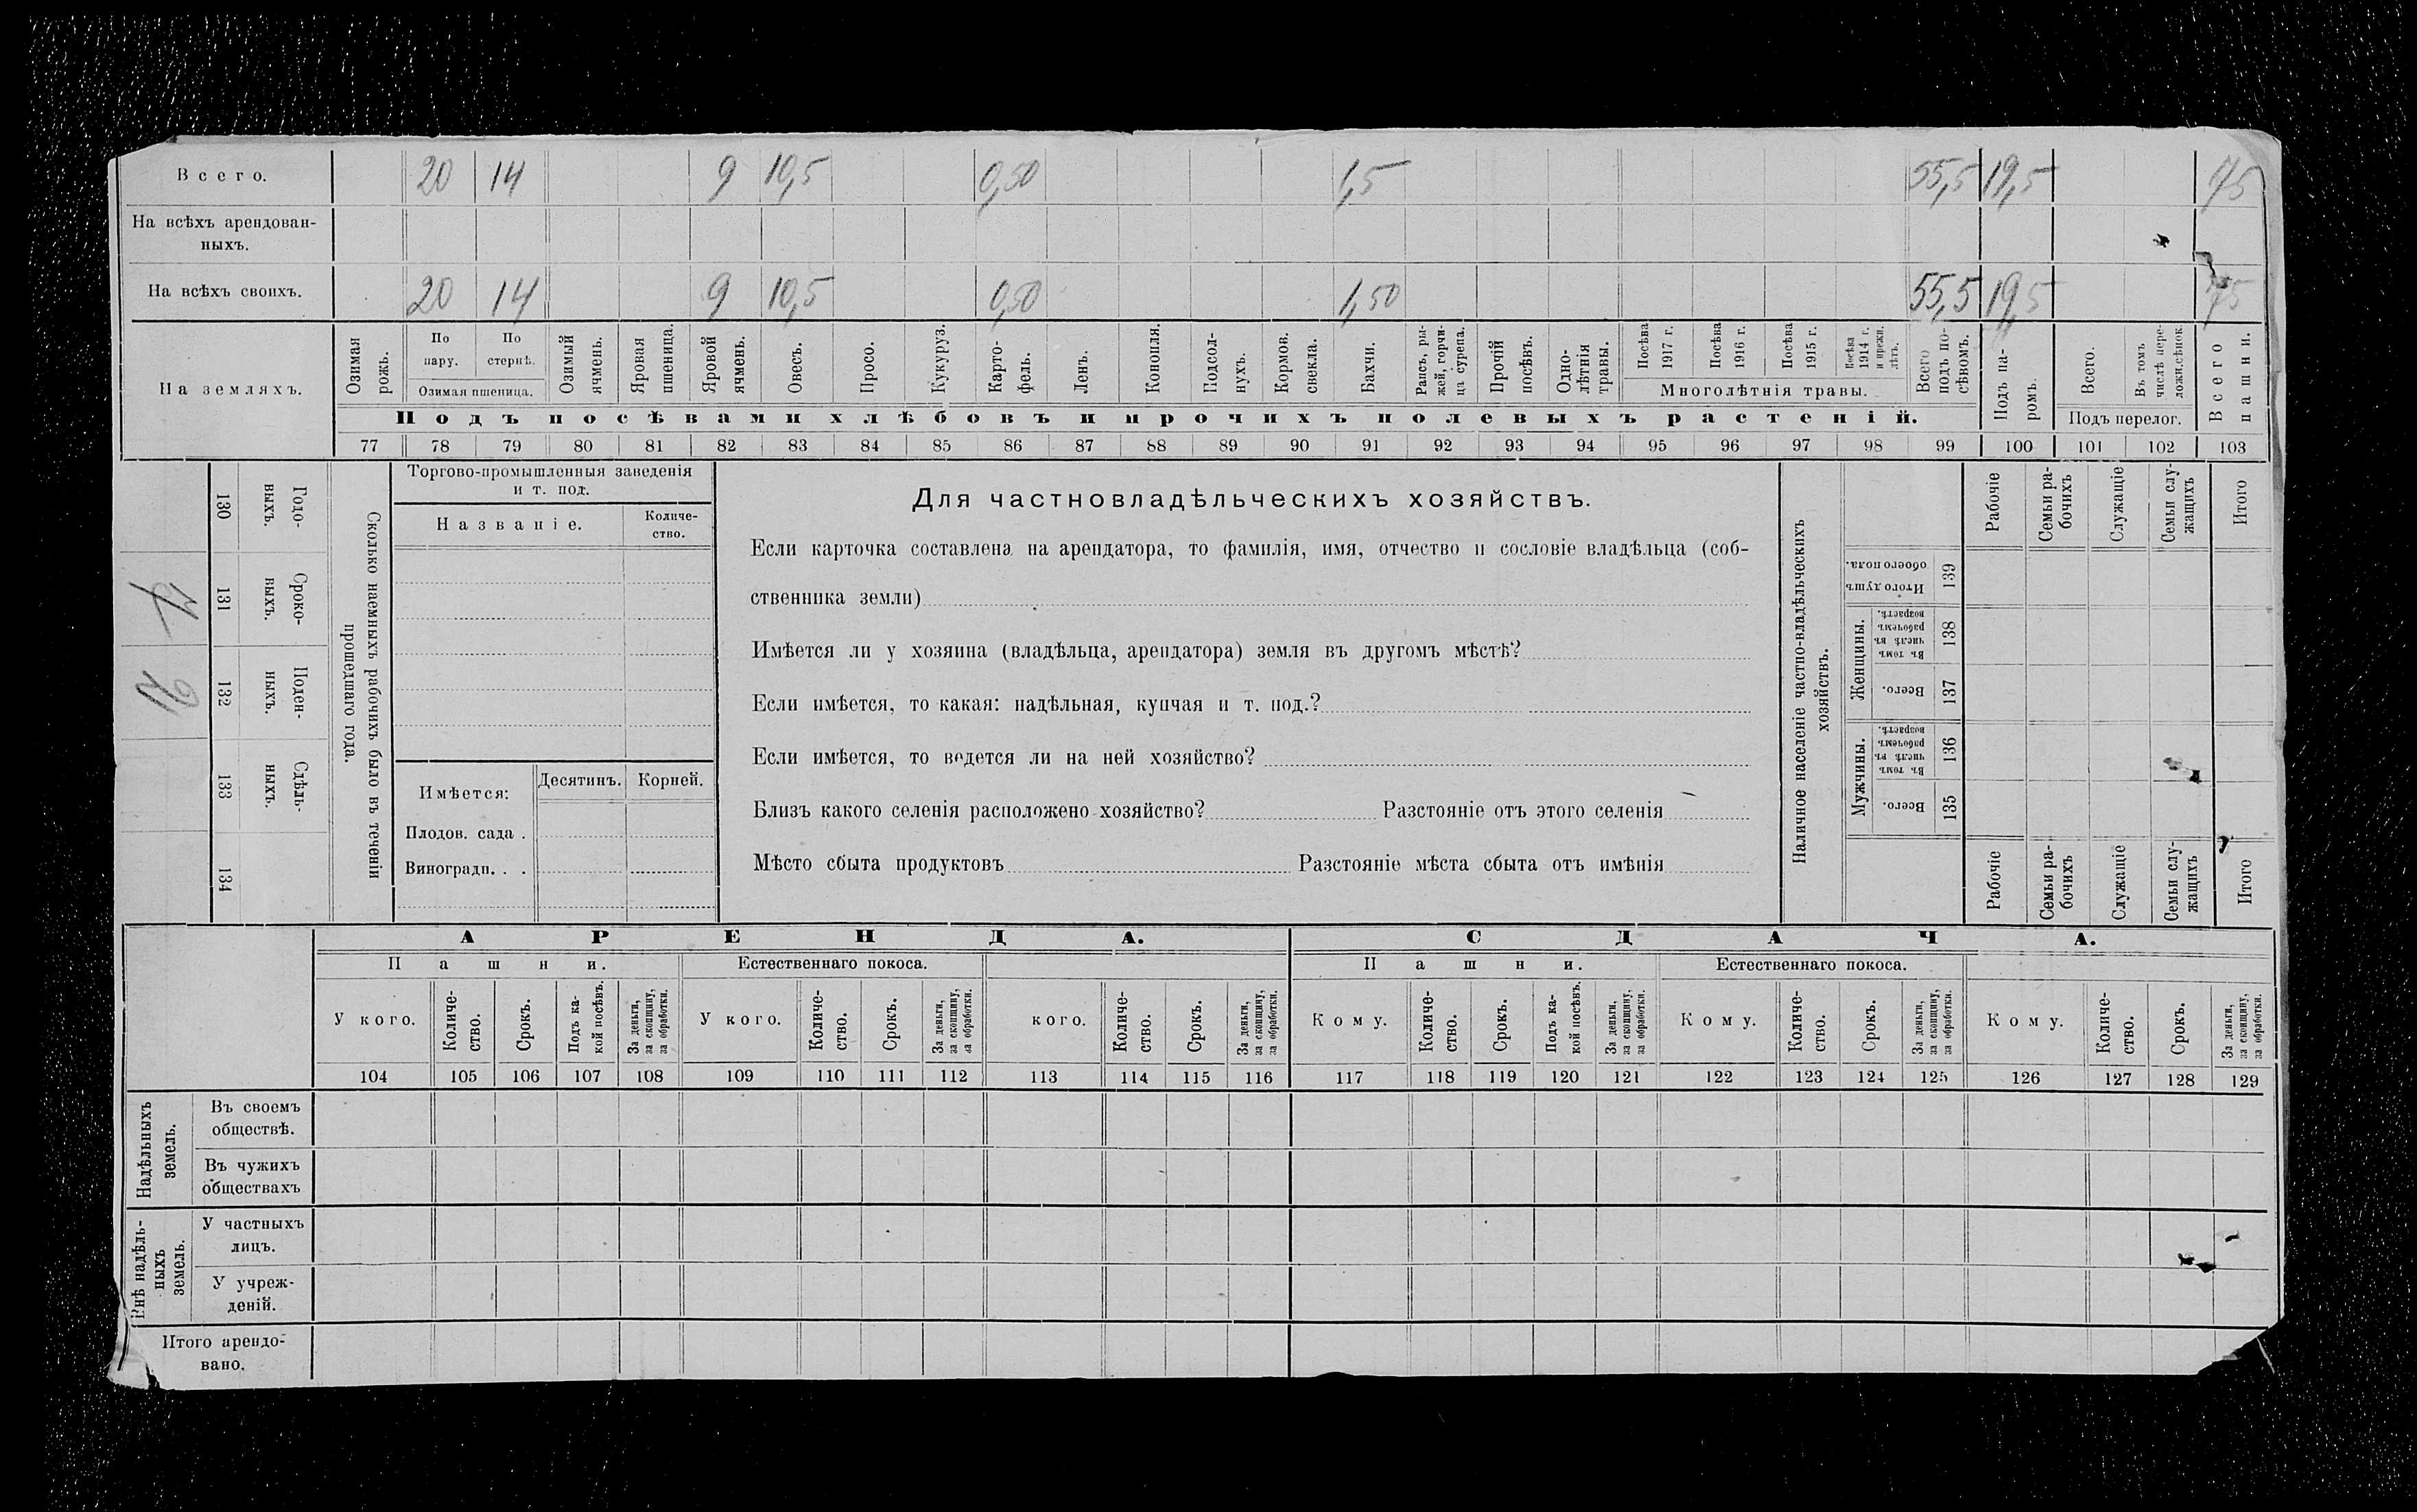 Всего. 20 14 9 10,5 0,50 1,5 55,5 19,5 75
На всѣхъ арендован-
ныхъ.
На всѣхъ своихъ. 20 14 9 10,5 0,50 1,50 55,5 19,5 75
На земляхъ.
Озимая рожь.
По пару.
По стернѣ.
Озимая пшеница.
Озимый ячмень.
Яровая пшеница.
Яровой ячмень.
Овесъ.
Просо.
Кукуруз.
Карто-
фель.
Ленъ.
Конопля.
Подсол-
нухъ.
Кормов. свекла.
Бахчи.
Рапсъ, ры-
жей, горчи-
ца сурепа.
Прочій посѣвъ.
Одно-
лѣтнія травы.
Посѣва 1917 г.
Посѣва 1916 г.
Посѣва 1915 г.
Посѣва 1914 г. и прежн. лѣтъ.
Многолѣтнія травы.
Всего подъ по-
сѣвомъ.
Подъ па-
ромъ.
Всего.
Въ томъ числѣ пере-
ложн.сѣнок.
Подъ перелог.
Всего пашни.
Подъ посѣвами хлѣбовъ и прочихъ полевыхъ растеній.
77 78 79 80 81 82 83 84 85 86 87 88 89 90 91 92 93 94 95 96 97 98 99 100 101 102 103
130 Годо-
выхъ.
131 Сроко-
выхъ.
132 Поден-
ныхъ.
133 Сдѣль-
ныхъ.
134
Сколько наемныхъ рабочихъ было въ теченіи
прошедшаго года.
Торгово-промышленныя заведенія
и т. под.
Названіе.
Количе-
ство.
Имѣется:
Десятинъ.
Корней.
Плодов. сада .
Виноградн. . .
Для частновладѣльческихъ хозяйствъ.
Если карточка составлена на арендатора, то фамилія, имя, отчество и сословіе владѣльца (соб-
ственника земли)
Имѣется ли у хозяина (владѣльца, арендатора) земля въ другомъ мѣстѣ?
Если имѣется, то какая: надѣльная, купчая и т. под.?
Если имѣется, то ведется ли на ней хозяйство?
Близъ какого селенія расположено хозяйство? Разстояніе отъ этого селенія
Мѣсто сбыта продуктовъ Разстояніе мѣста сбыта отъ имѣнія
Наличное населеніе частно-владѣльческихъ
хозяйствъ.
Рабочіе
Семьи ра-
бочихъ
Служащіе
Семьи слу-
жащихъ
Итого
Итого душъ обоего пола. 139
Женщины.
Въ томъ числѣ въ рабочемъ возрастѣ. 138
Всего. 137
Мужчины.
Въ томъ числѣ въ рабочемъ возрастѣ. 136
Всего. 135
Рабочіе
Семьи ра-
бочихъ
Служащіе
Семьи слу-
жащихъ
Итого
АРЕНДА. СДАЧА.
Пашни. Естественнаго покоса. Пашни. Естественнаго покоса.
У кого.
Количе-
ство.
Срокъ.
Подъ ка-
кой посѣвъ.
За деньги, за скопщину, за обработки.
У кого.
Количе-
ство.
Срокъ.
За деньги, за скопщину, за обработки.
кого.
Количе-
ство.
Срокъ.
За деньги, за скопщину, за обработки.
Кому.
Количе-
ство.
Срокъ.
Подъ ка-
кой посѣвъ.
За деньги, за скопщину, за обработки.
Кому.
Количе-
ство.
Срокъ.
За деньги, за скопщину, за обработки.
Кому.
Количе-
ство.
Срокъ.
За деньги, за скопщину, за обработки.
104 105 106 107 108 109 110 111 112 113 114 115 116 117 118 119 120 121 122 123 124 125 126 127 128 129
Надѣльныхъ земель.
Въ своемъ
обществѣ.
Въ чужихъ
обществахъ
Внѣ надѣль-
ныхъ земель.
У частныхъ
лицъ.
У учреж-
деній.
Итого арендо-
вано.